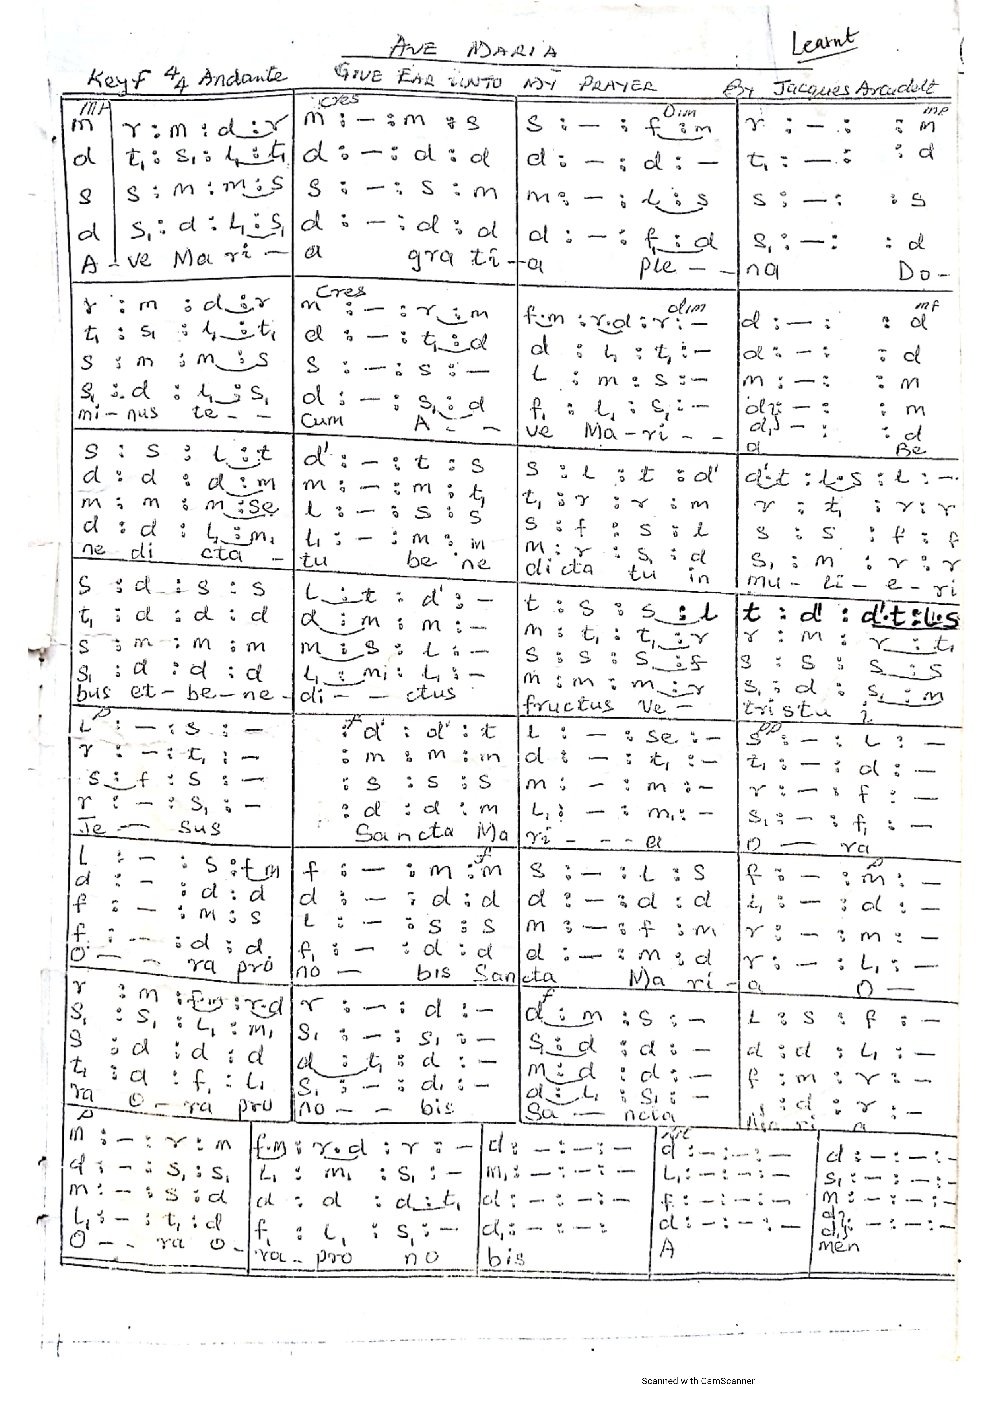 AVE MARIA
Learnt
Key F 4/4 Andante GIVE EAR UNTO MY PRAYER By Jacques Arcadelt
mp cres Dim mp
m | r : m : d : r | m : - : m : s | s : - : f : m | r : - : : m
d | t₁ : s₁ : l₁ : t₁ | d : - : d : d | d : - : d : - | t₁ : - : : d
s | s : m : m : s | s : - : s : m | m : - : l : s | s : - : : s
d | s₁ : d : l₁ : s₁ | d : - : d : d | d : - : f₁ : d | s₁ : - : : d
A - ve Mari - a grati - a Ple - - na Do -
cres dim mf
r : m : d : r | m : - : r : m | f.m : r.d : r : - | d : - : : d
t₁ : s₁ : l₁ : t₁ | d : - : t₁ : d | d : l₁ : t₁ : - | d : - : : d
s : m : m : s | s : - : s : - | l : m : s : - | m : - : : m
s₁ : d : l₁ : s₁ | d : - : s₁ : d | f₁ : l₁ : s₁ : - | d} : - : : m
d₁} : - : : d
mi - nus te - - Cum A - - - ve Ma - ri - - a Be
s : s : l : t | d' : - : t : s | s : l : t : d' | d'.t : l.s : l : -
d : d : d : m | m : - : m : t₁ | t₁ : r : r : m | r : t₁ : r : r
m : m : m : se | l : - : s : s | s : f : s : l | s : s : f : f
d : d : l₁ : m₁ | l₁ : - : m : m | m : r : s₁ : d | s₁ : m : r : r
ne di cta - tu be ne dicta tu in mu - li - e - ri
s : d : s : s | l : t : d' : - | t : s : s : l | t : d' : d'.t : l.s
t₁ : d : d : d | d : m : m : - | m : t₁ : t₁ : r | r : m : r : t₁
s : m : m : m | m : s : l : - | s : s : s : f | s : s : s : s
s₁ : d : d : d | l₁ : m₁ : l₁ : - | m : m : m : r | s₁ : d : s₁ : m
bus et - be - ne - di - - ctus fructus ve - tristu i
p f pp
l : - : s : - | : d' : d' : t | l : - : se : - | s : - : l : -
r : - : t₁ : - | : m : m : m | d : - : t₁ : - | t₁ : - : d : -
s : f : s : - | : s : s : s | m : - : m : - | r : - : f : -
r : - : s₁ : - | : d : d : m | l₁ : - : m₁ : - | s₁ : - : f₁ : -
Je - sus Sancta Ma ri - - - a O - ra
f p
l : - : s : f m | f : - : m : m | s : - : l : s | f : - : m : -
d : - : d : d | d : - : d : d | d : - : d : d | l₁ : - : d : -
f : - : m : s | l : - : s : s | m : - : f : m | r : - : m : -
f : - : d : d | f₁ : - : d : d | d : - : m : d | r : - : l₁ : -
O - - ra pro no - bis Sancta Ma ri - a O -
f
r : m : f.m : r.d | r : - : d : - | d : m : s : - | l : s : f : -
s₁ : s₁ : l₁ : m₁ | s₁ : - : s₁ : - | s₁ : d : d : - | d : d : l₁ : -
s : d : d : d | d : t₁ : d : - | m : d : d : - | f : m : r : -
t₁ : d : f₁ : l₁ | s₁ : - : d₁ : - | d : l₁ : s₁ : - | : d : r : -
ra O - ra pro no - - bis Sa - ncta
p
m : - : r : m | f.m : r.d : r : - | d : - : - : - | d : - : - : - | d : - : - : -
d : - : s₁ : s₁ | l₁ : m₁ : s₁ : - | m₁ : - : - : - | l₁ : - : - : - | s₁ : - : - : -
m : - : s : d | d : d : d : t₁ | d : - : - : - | f : - : - : - | m : - : - : -
l₁ : - : t₁ : d | f₁ : l₁ : s₁ : - | d₁ : - : - : - | d : - : - : - | d} : - : - : -
d₁}
O - - ra O - ra - pro no bis A men
Scanned with CamScanner